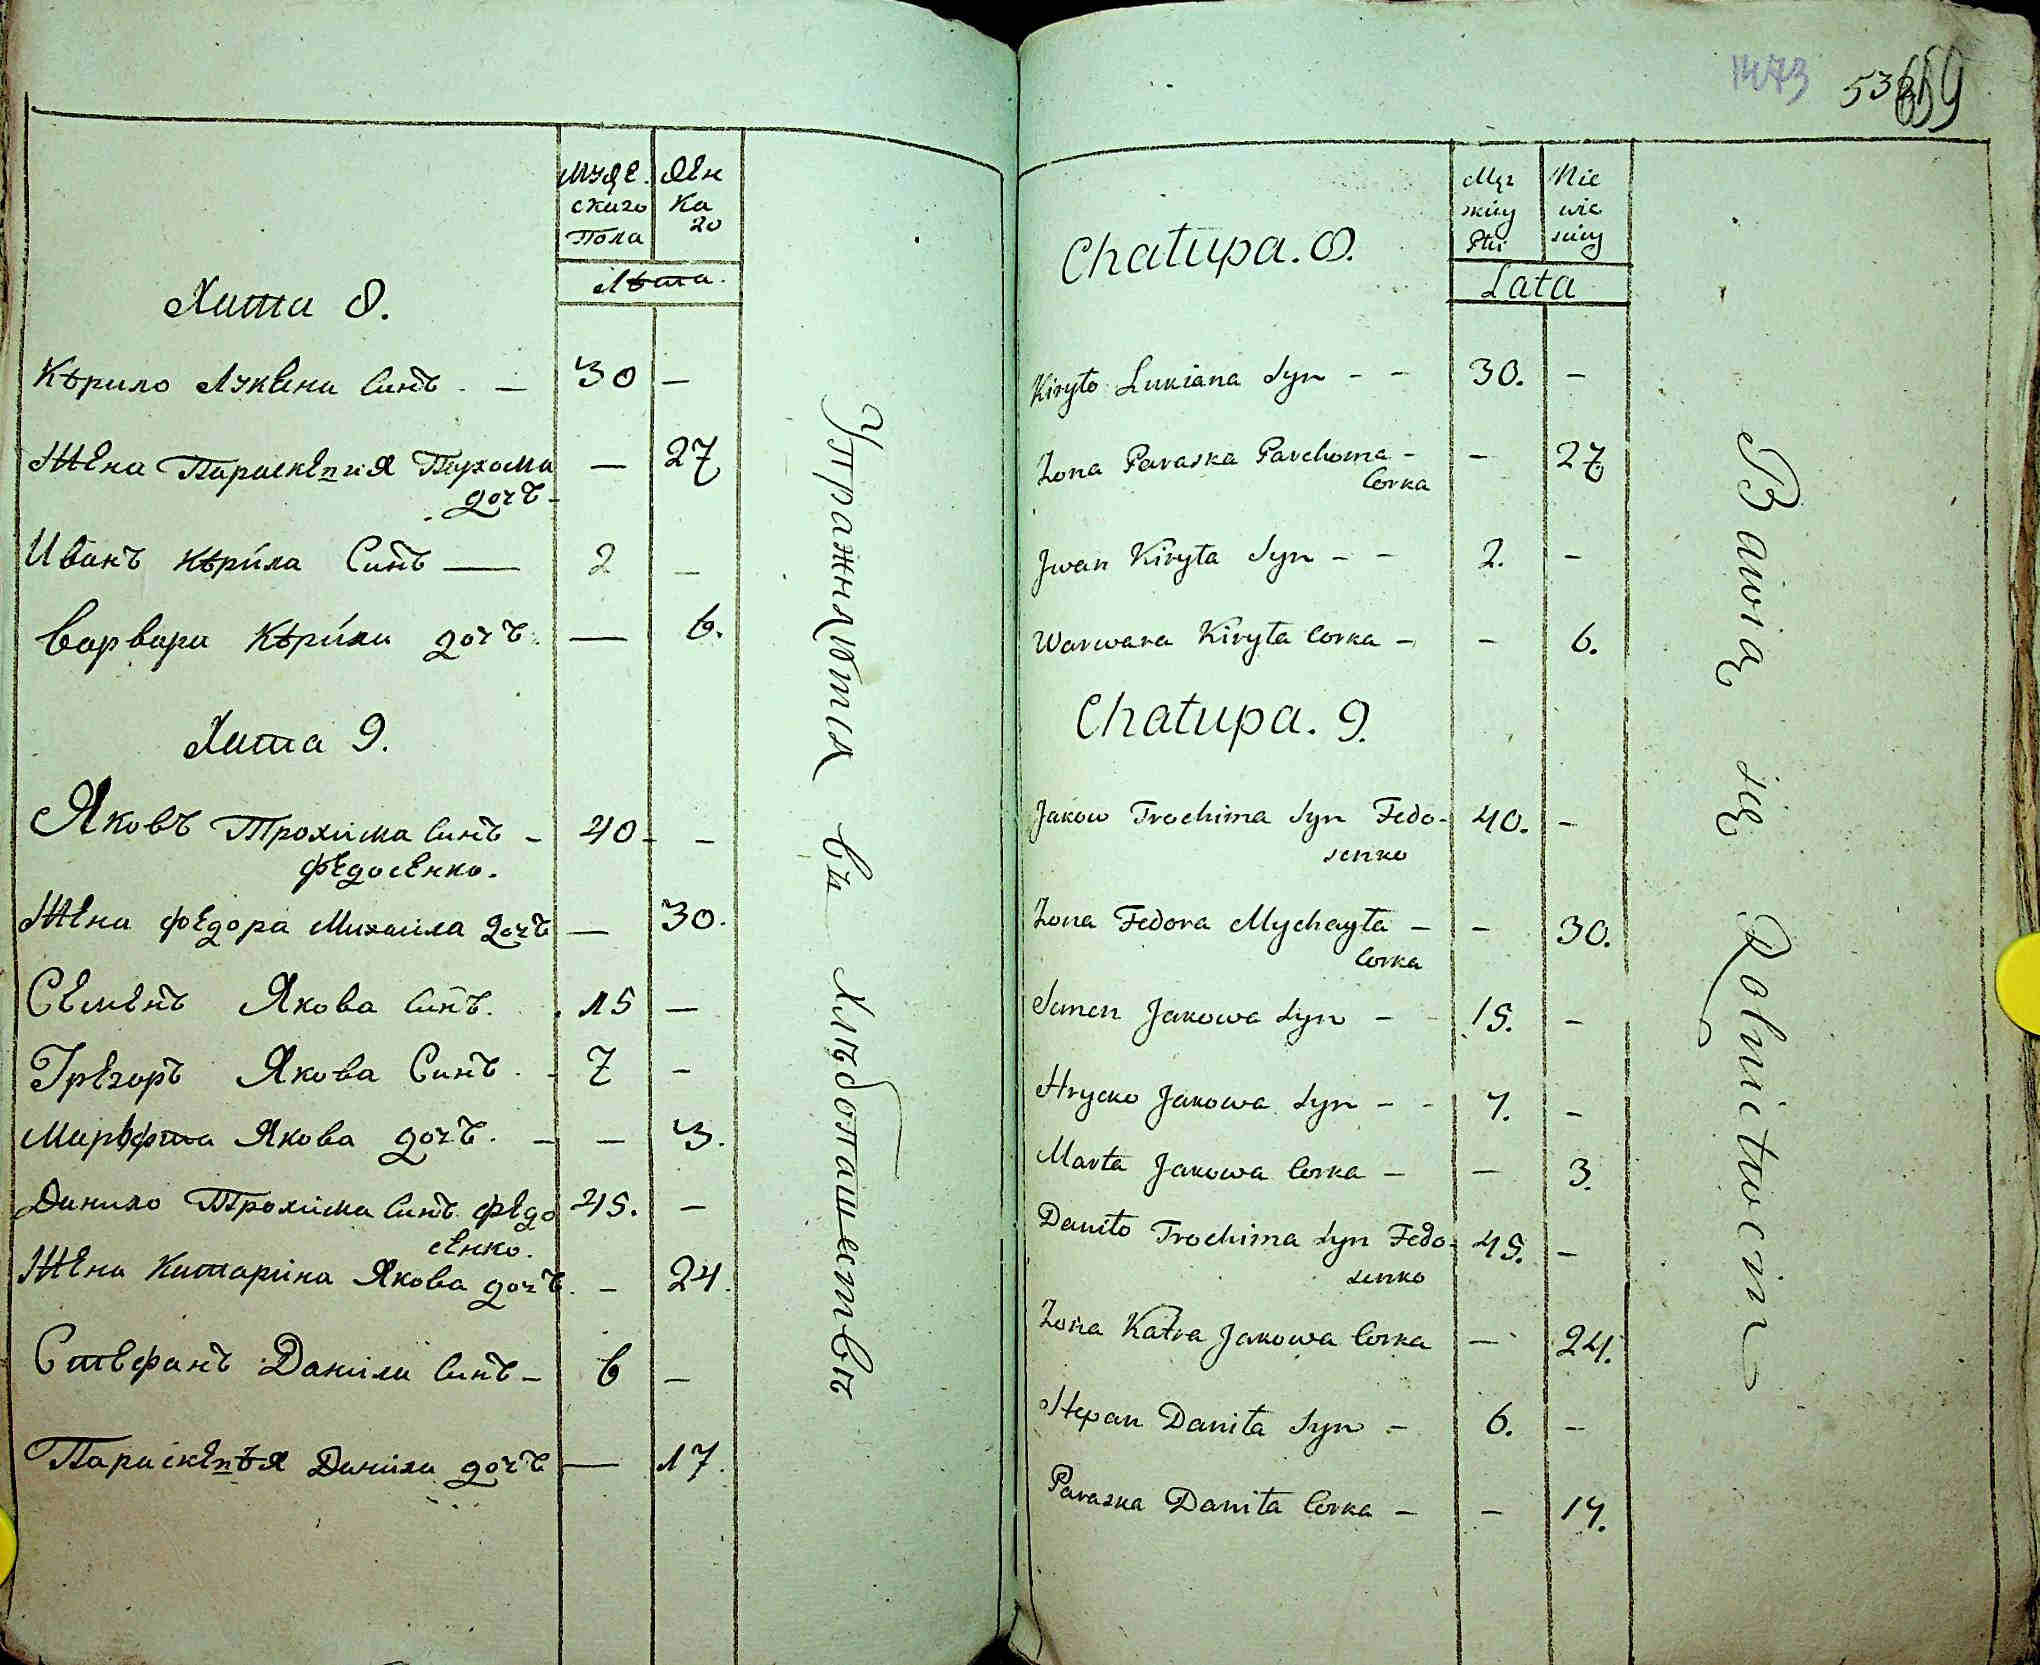 Муже. Жен
ского ка
Пола го
Лѣта.
Хата 8.
Кѣрило Лукѣяна Синъ. — 30 —
Жена Параскепия Пархома — 27
дочъ -
Иванъ Кѣрила Синъ — 2 —
Варвара Кѣрила дочъ. — 6.
Хата 9.
Яковъ Трохима Синъ - 40 - -
Федосенко.
Жена Федора Михаила дочъ — 30.
Семенъ Якова Синъ. 15 —
Грегоръ Якова Синъ. - 7 -
Марфта Якова дочъ. - - 3.
Данило Трохима Синъ Федо 45. -
сенко.
Жена Катарина Якова дочъ. - 24.
Стефанъ Данила Синъ - 6 -
Параскепъя Данила дочъ — 17.
Упражняются въ хлѣбопашествѣ
1473 53 659
Męz Nie
skiey wie
Płci skiey
Lata
Chałupa. 8.
Kiryło Lukiana Syn - - 30. -
Zona Paraska Parchoma - - 27
Corka
Jwan Kiryła Syn - - 2. -
Warwara Kiryła Corka - - 6.
Chałupa. 9.
Jakow Trochima Syn Fedo- 40. -
senko
Zona Fedora Mychayła - - 30.
Corka
Semen Jakowa Syn - - 15. -
Hrycko Jakowa Syn - - 7. -
Marta Jakowa Corka - - 3.
Daniło Trochima Syn Fedo- 45. -
senko
Zona Katra Jakowa Corka - 24.
Stepan Daniła Syn - 6. -
Paraska Daniła Corka - - 17.
Bawią się Rolnictwem